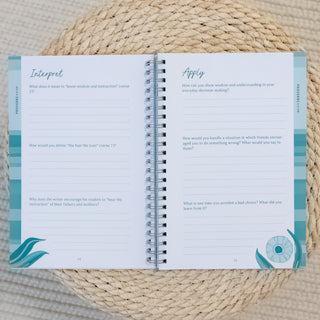 Interpret
What does it mean to "know wisdom and instruction" (verse
2)?
How would you define "the fear the LORD" (verse 7)?
Why does the writer encourage his student to "hear the
instruction" of their fathers and mothers?
Apply
How can you show wisdom and understanding in your
everyday decision making?
How would you handle a situation in which friends encour-
aged you to do something wrong? What would you say to
them?
What is one time you avoided a bad choice? What did you
learn from it?